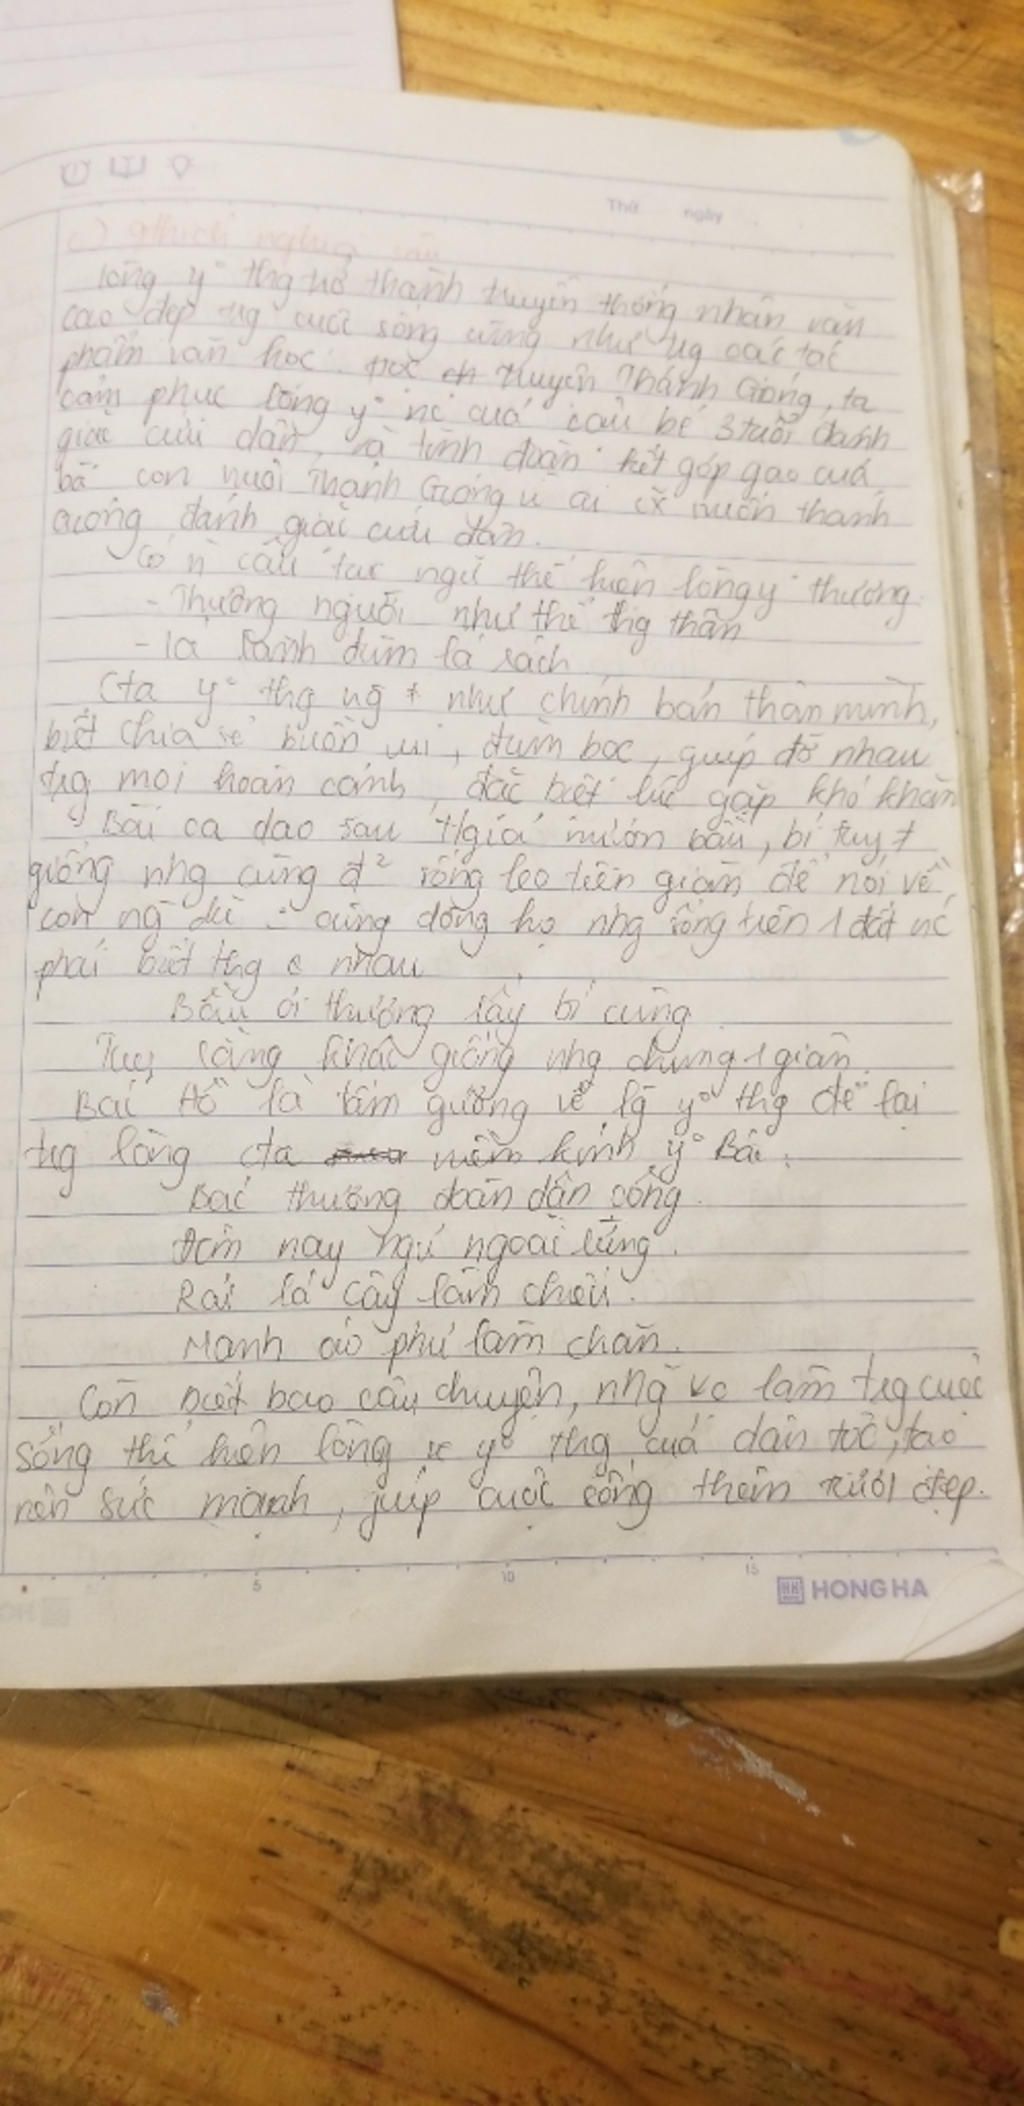 Thứ ngày
c) nghĩa
lòng y° thg trở thành truyền thống nhân văn
cao đẹp trg cuộc sống cũng như trg các tác
phẩm văn học. truyện Thánh Gióng, ta
cảm phục lòng y° nc của cậu bé 3 tuổi đánh
giặc cứu dân, và tình đoàn kết góp gạo của
bà con nuôi Thánh Gióng vì ai muốn thánh
gióng đánh giặc cứu dân.
Có n câu tục ngữ thể hiện lòng y° thương
- Thương người như thể thg thân
- lá lành đùm lá rách
Cta y° thg ng + như chính bản thân mình,
biết chia sẻ buồn vui, đùm bọc, giúp đỡ nhau
trg mọi hoàn cảnh, đặc biệt lúc gặp khó khăn
Bài ca dao sau tgiả mượn bầu, bí tuy ≠
giống nhg cùng đ² sống leo trên giàn để nói về
con ng dù cùng dòng họ nhg sống trên 1 đất nc
phải biết thg nhau
Bầu ơi thương lấy bí cùng
Tuy rằng khác giống nhg chung 1 giàn.
Bác Hồ là tấm gương về lg y° thg để lại
trg lòng cta niềm kính y° Bác:
Bác thương đoàn dân công.
Đêm nay ngủ ngoài rừng.
Rải lá cây làm chiếu.
Manh áo phủ làm chăn.
Còn biết bao câu chuyện, nhg vc làm trg cuộc
sống thể hiện lòng y° thg của dân tộc, tạo
nên sức mạnh, giúp cuộc sống thêm tươi đẹp.
5 10 15
HONG HA